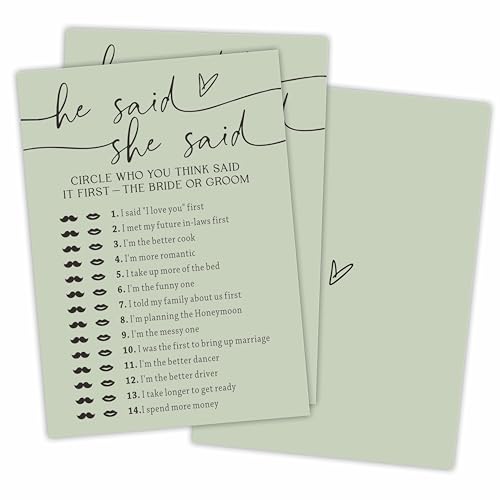 he said
she said
CIRCLE WHO YOU THINK SAID
IT FIRST – THE BRIDE OR GROOM
1. I said "I love you" first
2. I met my future in-laws first
3. I'm the better cook
4. I'm more romantic
5. I take up more of the bed
6. I'm the funny one
7. I told my family about us first
8. I'm planning the Honeymoon
9. I'm the messy one
10. I was the first to bring up marriage
11. I'm the better dancer
12. I'm the better driver
13. I take longer to get ready
14. I spend more money